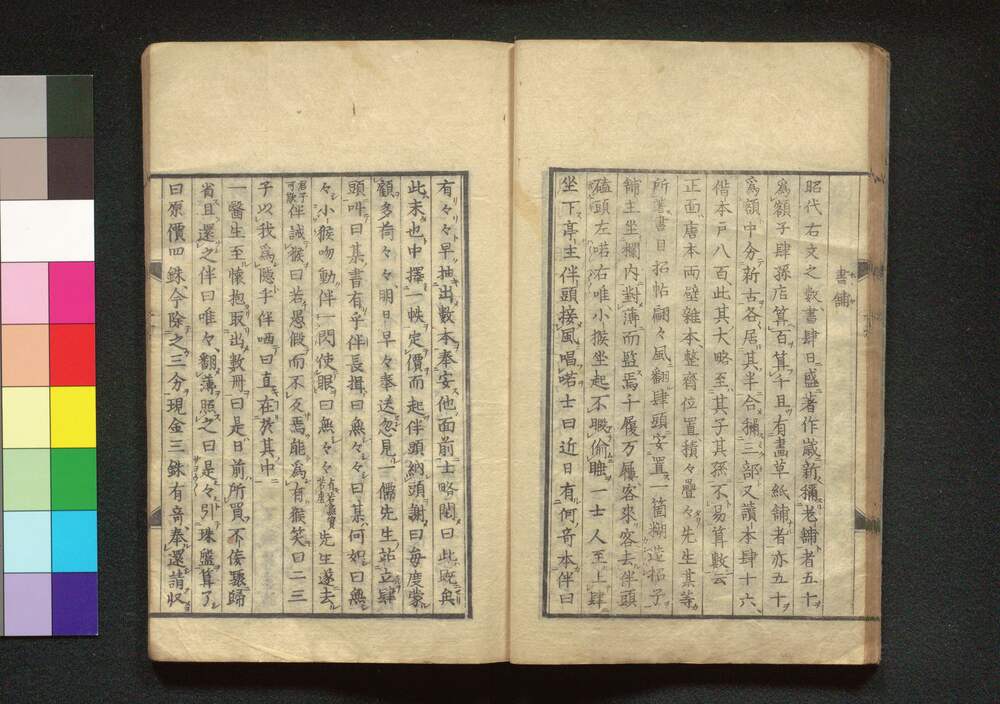 書鋪
昭代右文之數書肆日盛著作歲新稱老鋪者五十
爲額子肆孫店算百算千且有畫草紙鋪者亦五十
爲額中分新古各居其半合稱三部又讀本肆十六
偕本戸八百此其大略至其子其孫不易算數云
正面唐本兩壁雜本整齊位置積々疊々先生某等
所著書目招帖翩々風翻肆頭安置一箇糊造招子
鋪主坐欄内對薄而監焉千履万屨客來客去伴頭
磕頭左喏右唯小猴坐起不暇偷睡一士人至上肆
坐下亭主伴頭接風唱喏士曰近日有何奇本伴曰
有々々早抽出數本奉安他面前士略閲曰此既典
此末也中擇一帙定價而起伴頭納頭謝曰每度蒙
顧多荷々々明日早々奉送忽見一儒先生站立肆
頭呌曰某書有乎伴長揖曰無々々曰某何如曰無
々小猴吻動伴一閃使眼曰無々々有若無實若虚先生遂去
君子可欺伴誡猴曰若愚假而不反焉能爲有猴笑曰二三
子以我爲隱乎伴哂曰直在於其中
一醫生至懷抱取出數冊曰是日前所買不倭驟歸
省且還之伴曰唯々翻薄照之曰是々引珠盤算了
曰原價四銖今除之三分現金三銖有奇奉還請収